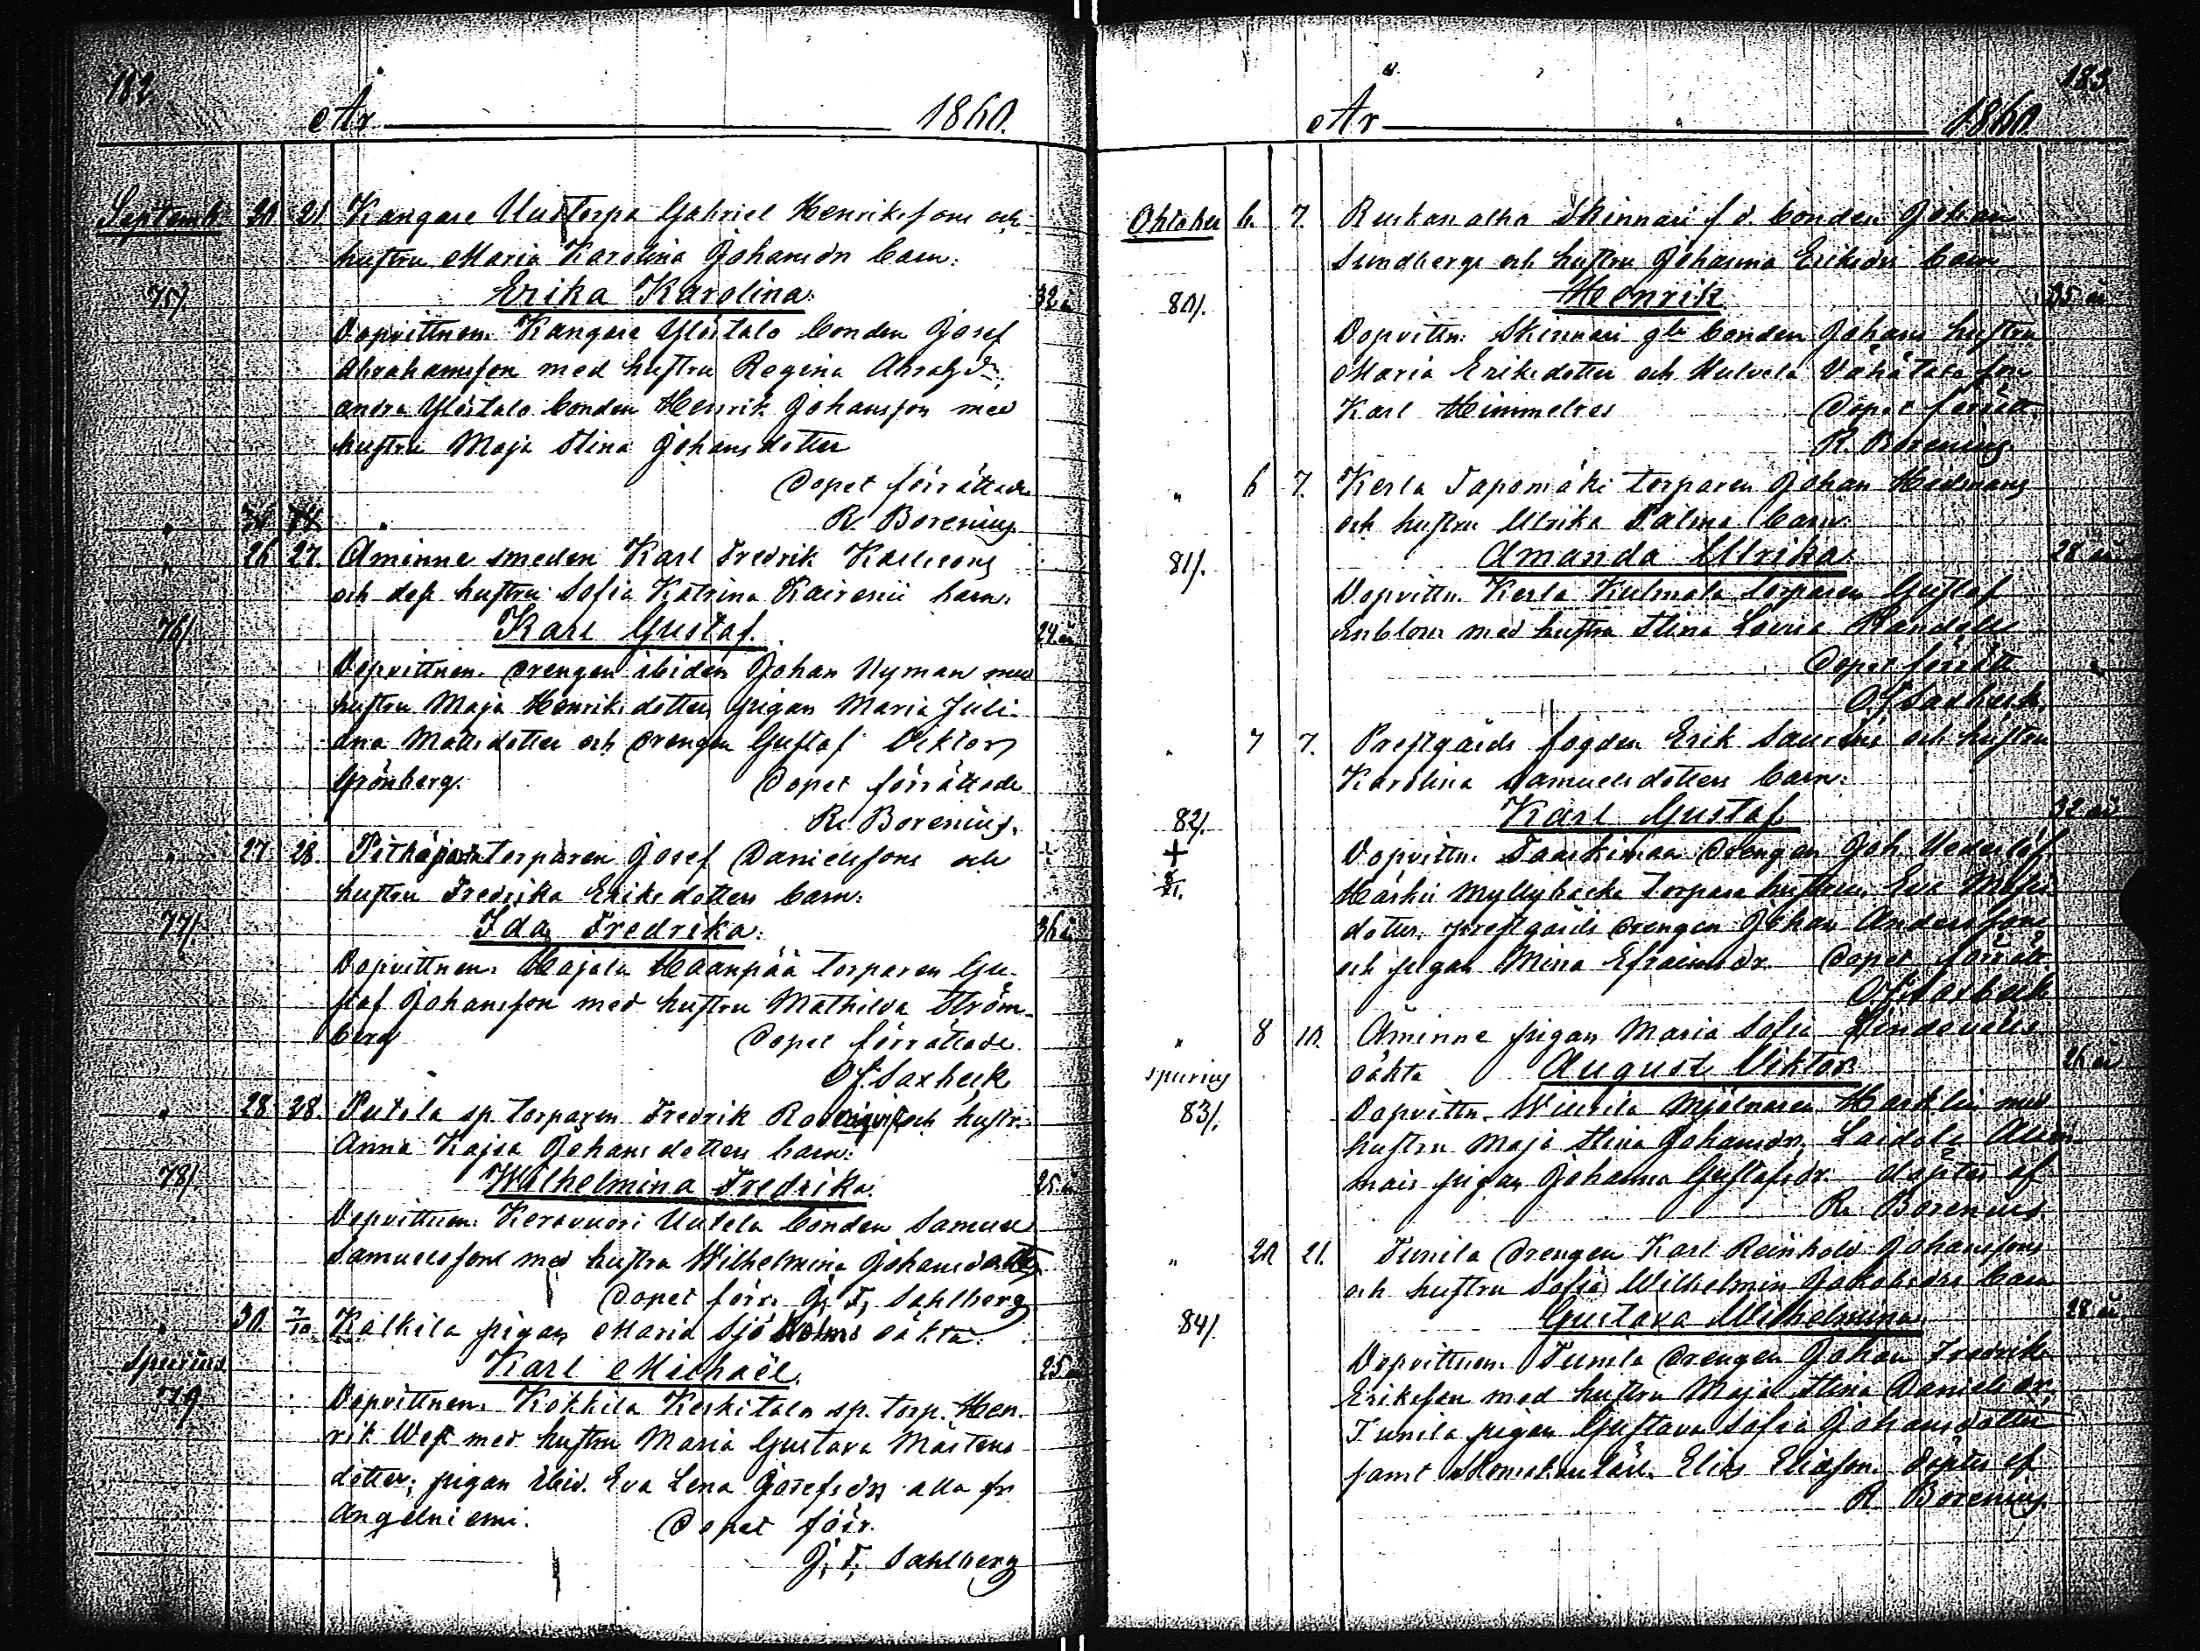 182
År 1860.
Septemb. 20 21 Kangare Uustorpa Gabriel Henrikssons och
hustru Maria Karolina Johansdrs barn:
75/. Erika Karolina. 32 å
Dopvittnen. Kangare Ylistalo bonden Josef
Abrahamsson med hustru Regina Abrahdr.
andra Ylistalo bonden Henrik Johansson med
hustru Maja Stina Johansdotter
Dopet förrättade
R. Borenius.
" 26 27. Åminne smeden Karl Fredrik Karlssons
och dess hustru Sofia Katrina Kairenii barn.
76/. Karl Gustaf. 24 å
Dopvittnen. drengen ibidem Johan Nyman med
hustru Maja Henriksdotter, pigan Maria Juli-
ana Mattsdotter och drengen Gustaf Viktor
Grönberg. Dopet förrättade
R. Borenius.
" 27 28. torparen Josef Danielssons och
hustru Fredrika Eriksdotters barn:
77/. Ida Fredrika. 36 å
Dopvittnen: Hajala Haanpää torparen Gu-
staf Johansson med hustru Mathilda Ström-
berg Dopet förrättade.
O.F. Saxbeck
" 28 28. Putila sp. torparen Fredrik och hustru
Anna Kajsa Johansdotters barn:
78/. Wilhelmina Fredrika. 25 å
Dopvittnen: Keravuori Uutela bonden Samuel
Samuelssons med hustru Wilhelmina Johansdotter
Dopet förr. G. F. Sahlberg
" 30. 7/10. Kalkila pigan Maria Sjöholms oäkta.
spurius Karl Michaël. 25 å
79 Dopvittnen. Kokkila Keskitalo sp. torp. Hen-
rik West med hustru Maria Gustava Mårtens-
dotter; pigan ibid. Eva Lena Josefsdr alla fr.
Angelniemi. Dopet förr.
G. F. Sahlberg
183
År 1860
Oktober 6. 7. Ruskan alha Skinnari f.d. bonden Johan
Sundbergs och hustru Johanna Eriksdrs barn
80/. Henrik 35 å
Dopvittn: Skinnari gle bonden Johans hustru
Maria Eriksdotter och Vähätalo
Karl Himmelros Dopet förrätt.
R. Borenius.
" 6 7. Kerla Tapomäki torparen Johan
och hustru Ulrika Palms barn:
81/. Amanda Ulrika. 28 å
Dopvittn. Kerla Kulmala torparen Gustaf
Enblom med hustru Stina Lovisa
Dopet förrätt
O.F. Saxbeck.
" 7 7. Prestgårds fogden Erik och hustru
Karolina Samuelsdotters barn:
82/. Karl Gustaf 32 å
+ Dopvittn: drengen Joh.
Myllybacka torpare hustrun Eva
dotter, prestgårds drengen Johan Andersson
och pigan Mina Efraimsdr. Dopet förrätt
O.F. Saxbeck
" 8 10. Åminne pigan Maria Sofia
spurius oäkta August Viktor 26 å
83/. Dopvittn. mjölnaren med
hustru Maja Stina Johansdr,
pigan Johanna Gustafsdr. döptes af
R. Borenius
" 20 21. Tunila drengen Karl Reinhold Johanssons
och hustru Sofia Wilhelmin Jakobsdrs barn
84/. Gustava Wilhelmina. 28 å
Dopvittnen. Tunila drengen Johan Fredrik
Eriksson med hustru Maja Stina Danielsdr,
Tunila pigan Gustava Sofia Johansdotter
samt Elias Eliasson. döptes af
R. Borenius.